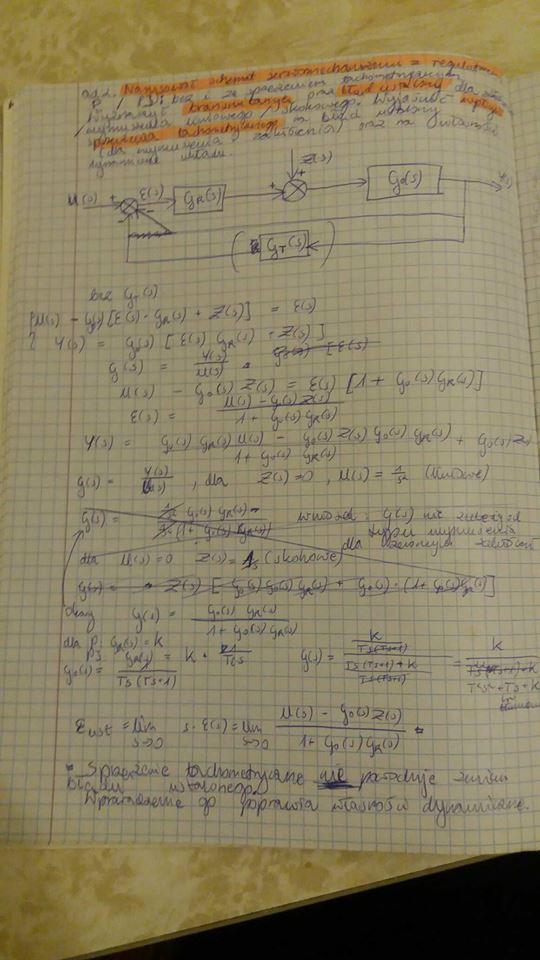 zad 2. Narysować schemat serwomechanizmu z regulatorem
P / PI bez i ze sprzężeniem tachometrycznym
Wyznaczyć transmitancję oraz błąd ustalony dla
wymuszenia liniowego / skokowego. Wyjaśnić wpływ
sprzężenia tachometrycznego na błąd ustalony
(dla wymuszenia i zakłócenia) oraz na własności
dynamiczne układu.
Z(s)
U(s) + ε(s) GR(s) + + G0(s) Y(s)
−
( GT(s) )
bez GT(s)
U(s) − G0(s) [ε(s) · GR(s) + Z(s)] = ε(s)
Y(s) = G0(s) [ε(s) GR(s) + Z(s)]
G(s) = Y(s)/U(s)
U(s) − G0(s) Z(s) = ε(s) [1 + G0(s) GR(s)]
ε(s) = (U(s) − G0(s) Z(s)) / (1 + G0(s) GR(s))
Y(s) = (G0(s) GR(s) U(s) − G0(s) Z(s) G0(s) GR(s)) / (1 + G0(s) GR(s)) + G0(s) Z(s)
G(s) = Y(s)/U(s) , dla Z(s) = 0 , U(s) = 1/s² (liniowe)
G(s) =
wniosek: G(s) nie zależy od
typu wymuszenia
dla zerowych zakłóceń
dla U(s) = 0 Z(s) = 1/s (skokowe)
G(s) = Z(s) [− G0(s) G0(s) GR(s) + G0(s) · (1 + G0(s) GR(s))]
G(s) = G0(s) GR(s) / (1 + G0(s) GR(s))
dla P: GR(s) = K
PI: GR(s) = K ·
G0(s) = 1 / (Ts (Ts+1))
G(s) = (K / (Ts(Ts+1))) / ((Ts(Ts+1) + K) / (Ts(Ts+1))) = K / (T²s² + Ts + K)
εust = lim s→0 s · ε(s) = lim s→0 (U(s) − G0(s) Z(s)) / (1 + G0(s) GR(s))
• Sprzężenie tachometryczne nie powoduje zmian
błędu ustalonego.
Wprowadzenie go poprawia własności dynamiczne.